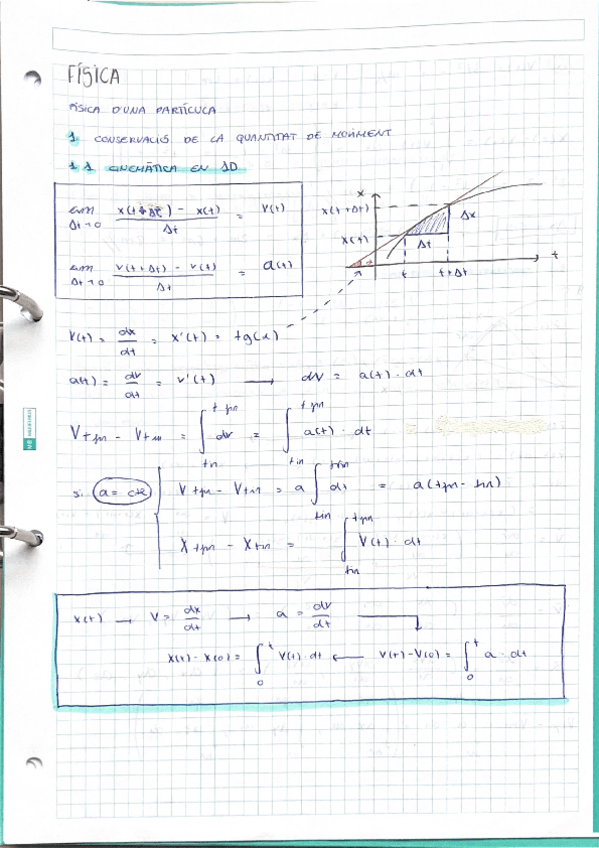 FÍSICA
FÍSICA D'UNA PARTÍCULA
1. CONSERVACIÓ DE LA QUANTITAT DE MOVIMENT
1.1 CINEMÀTICA EN 1D
lim Δt→0 (x(t+Δt) - x(t)) / Δt = v(t)
lim Δt→0 (v(t+Δt) - v(t)) / Δt = a(t)
x
x(t+Δt)
Δx
x(t)
Δt
t
α
t
t+Δt
v(t) = dx/dt = x'(t) = tg(α)
a(t) = dv/dt = v'(t) → dv = a(t) · dt
V tfin - V tin = ∫ tin tfin dv = ∫ tin tfin a(t) · dt
si a = ctt { V tfin - V tin = a ∫ tin tfin dt = a(tfin - tin)
X tfin - X tin = ∫ tin tfin V(t) · dt
x(t) → V = dx/dt → a = dv/dt
x(t) - x(0) = ∫ 0 t V(t) · dt ← V(t) - V(0) = ∫ 0 t a · dt